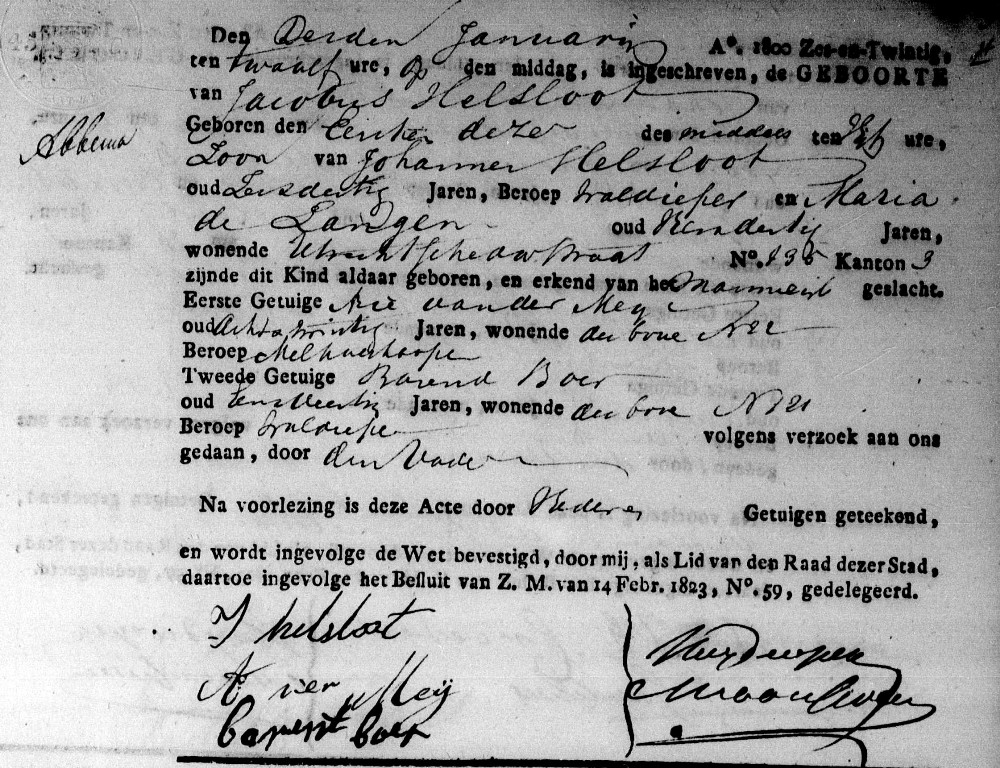 Den Derden Januarij A°. 1800 Zes-en-Twintig,
ten twaalf ure, op den middag, is ingeschreven, de GEBOORTE
van Jacobus Helsloot
Abbema
Geboren den Eersten dezer des middees ten Elf ure,
Zoon van Johannes Helsloot
oud Zesdertig Jaren, Beroep Waldieper en Maria
de Langen oud Jaren,
wonende Utrechtschedwarsstraat N°. 835 Kanton 3
zijnde dit Kind aldaar geboren, en erkend van het Mannelijk geslacht.
Eerste Getuige Arie van der Meij
oud Achtentwintig Jaren, wonende N 22
Beroep Melkverkooper
Tweede Getuige Barend Boer
oud Eenveertig Jaren, wonende N 21
Beroep Waldieper volgens verzoek aan ons
gedaan, door den Vader
Na voorlezing is deze Acte door Getuigen geteekend,
en wordt ingevolge de Wet bevestigd, door mij, als Lid van den Raad dezer Stad,
daartoe ingevolge het Besluit van Z. M. van 14 Febr. 1823, N°. 59, gedelegeerd.
J helsloot
A. v der Meij
barent boer